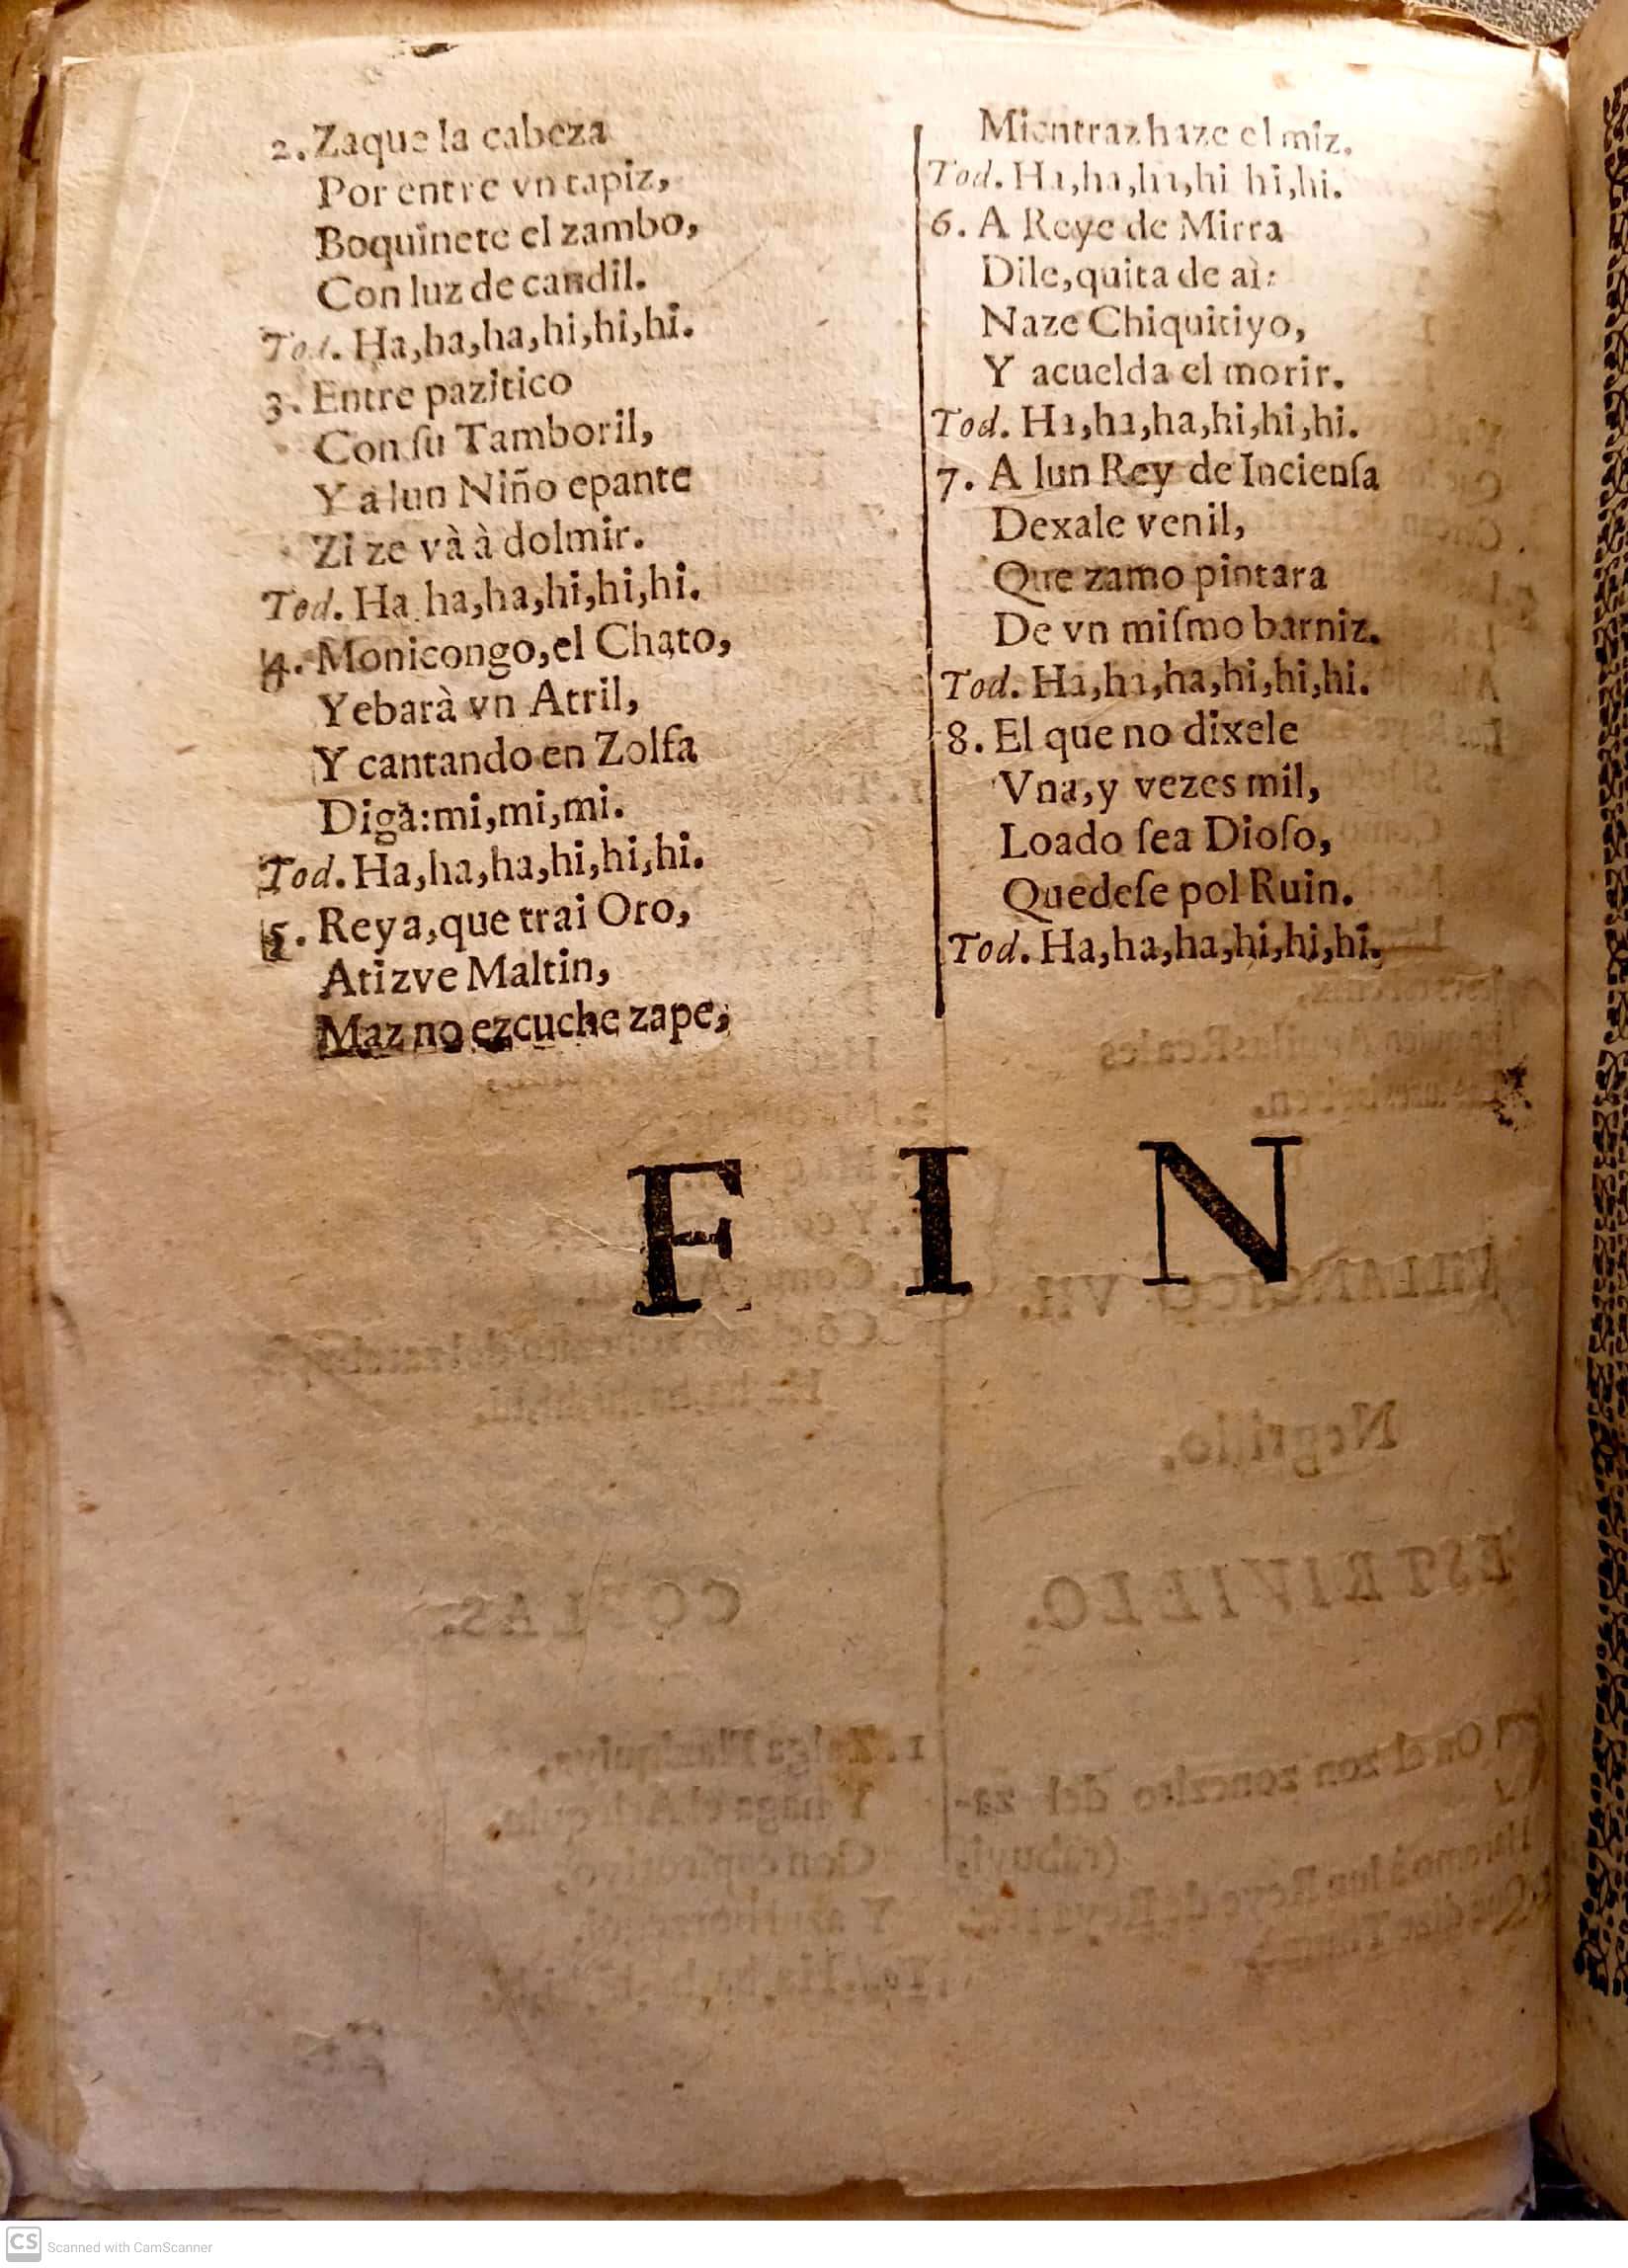 2. Zaque la cabeza
Por entre vn tapiz,
Boquinete el zambo,
Con luz de candil.
Tod. Ha,ha,ha,hi,hi,hi.
3. Entre pazitico
Con ſu Tamboril,
Y a lun Niño epante
Zi ze và à dolmir.
Tod. Ha ha,ha,hi,hi,hi.
4. Monicongo,el Chato,
Yebarà vn Atril,
Y cantando en Zolfa
Diga:mi,mi,mi.
Tod. Ha,ha,ha,hi,hi,hi.
5. Reya,que trai Oro,
Atizve Maltin,
Maz no ezcuche zape,
Mientraz haze el miz.
Tod. Ha,ha,ha,hi hi,hi.
6. A Reye de Mirra
Dile,quita de aì:
Naze Chiquitiyo,
Y acuelda el morir.
Tod. Ha,ha,ha,hi,hi,hi.
7. A lun Rey de Incienſa
Dexale venil,
Que zamo pintara
De vn miſmo barniz.
Tod. Ha,ha,ha,hi,hi,hi.
8. El que no dixele
Vna,y vezes mil,
Loado ſea Dioſo,
Quedeſe pol Ruin.
Tod. Ha,ha,ha,hi,hi,hi.
F I N
CS Scanned with CamScanner